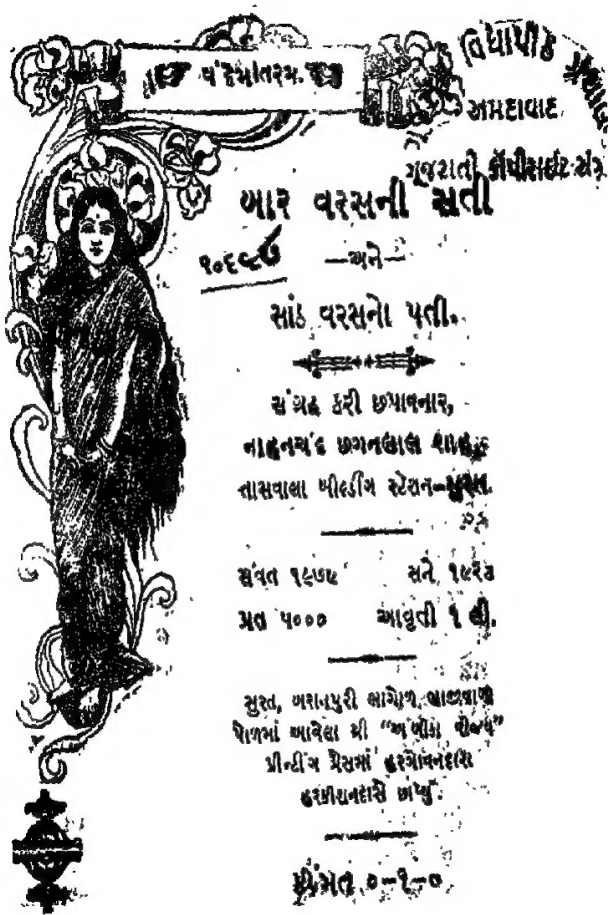 વંદેમાતરમ્.
વિદ્યાપીઠ ગ્રંથાલય
અમદાવાદ
ગૂજરાતી કૉપીરાઇટ સંગ્રહ
બાર વરસની સતી
૧૦૬૯૭
—અને—
સાંઠ વરસનો પતી.
સંગ્રહ કરી છપાવનાર,
નાહનચંદ છગનલાલ શાહ,
તાસવાલા બીલ્ડીંગ સ્ટેશન–સુરત.
સંવત ૧૯૭૯ સને ૧૯૨૩
પ્રત ૫૦૦૦ આવૃતી ૧ લી.
સુરત, બરાનપુરી ભાગોળ,
પોળમાં આવેલા શ્રી “અંબીકા વીજય”
પ્રીન્ટીંગ પ્રેસમાં હરગોવનદાસ
હરકીશનદાસે છાપ્યું.
કીંમત ૦–૧–૦